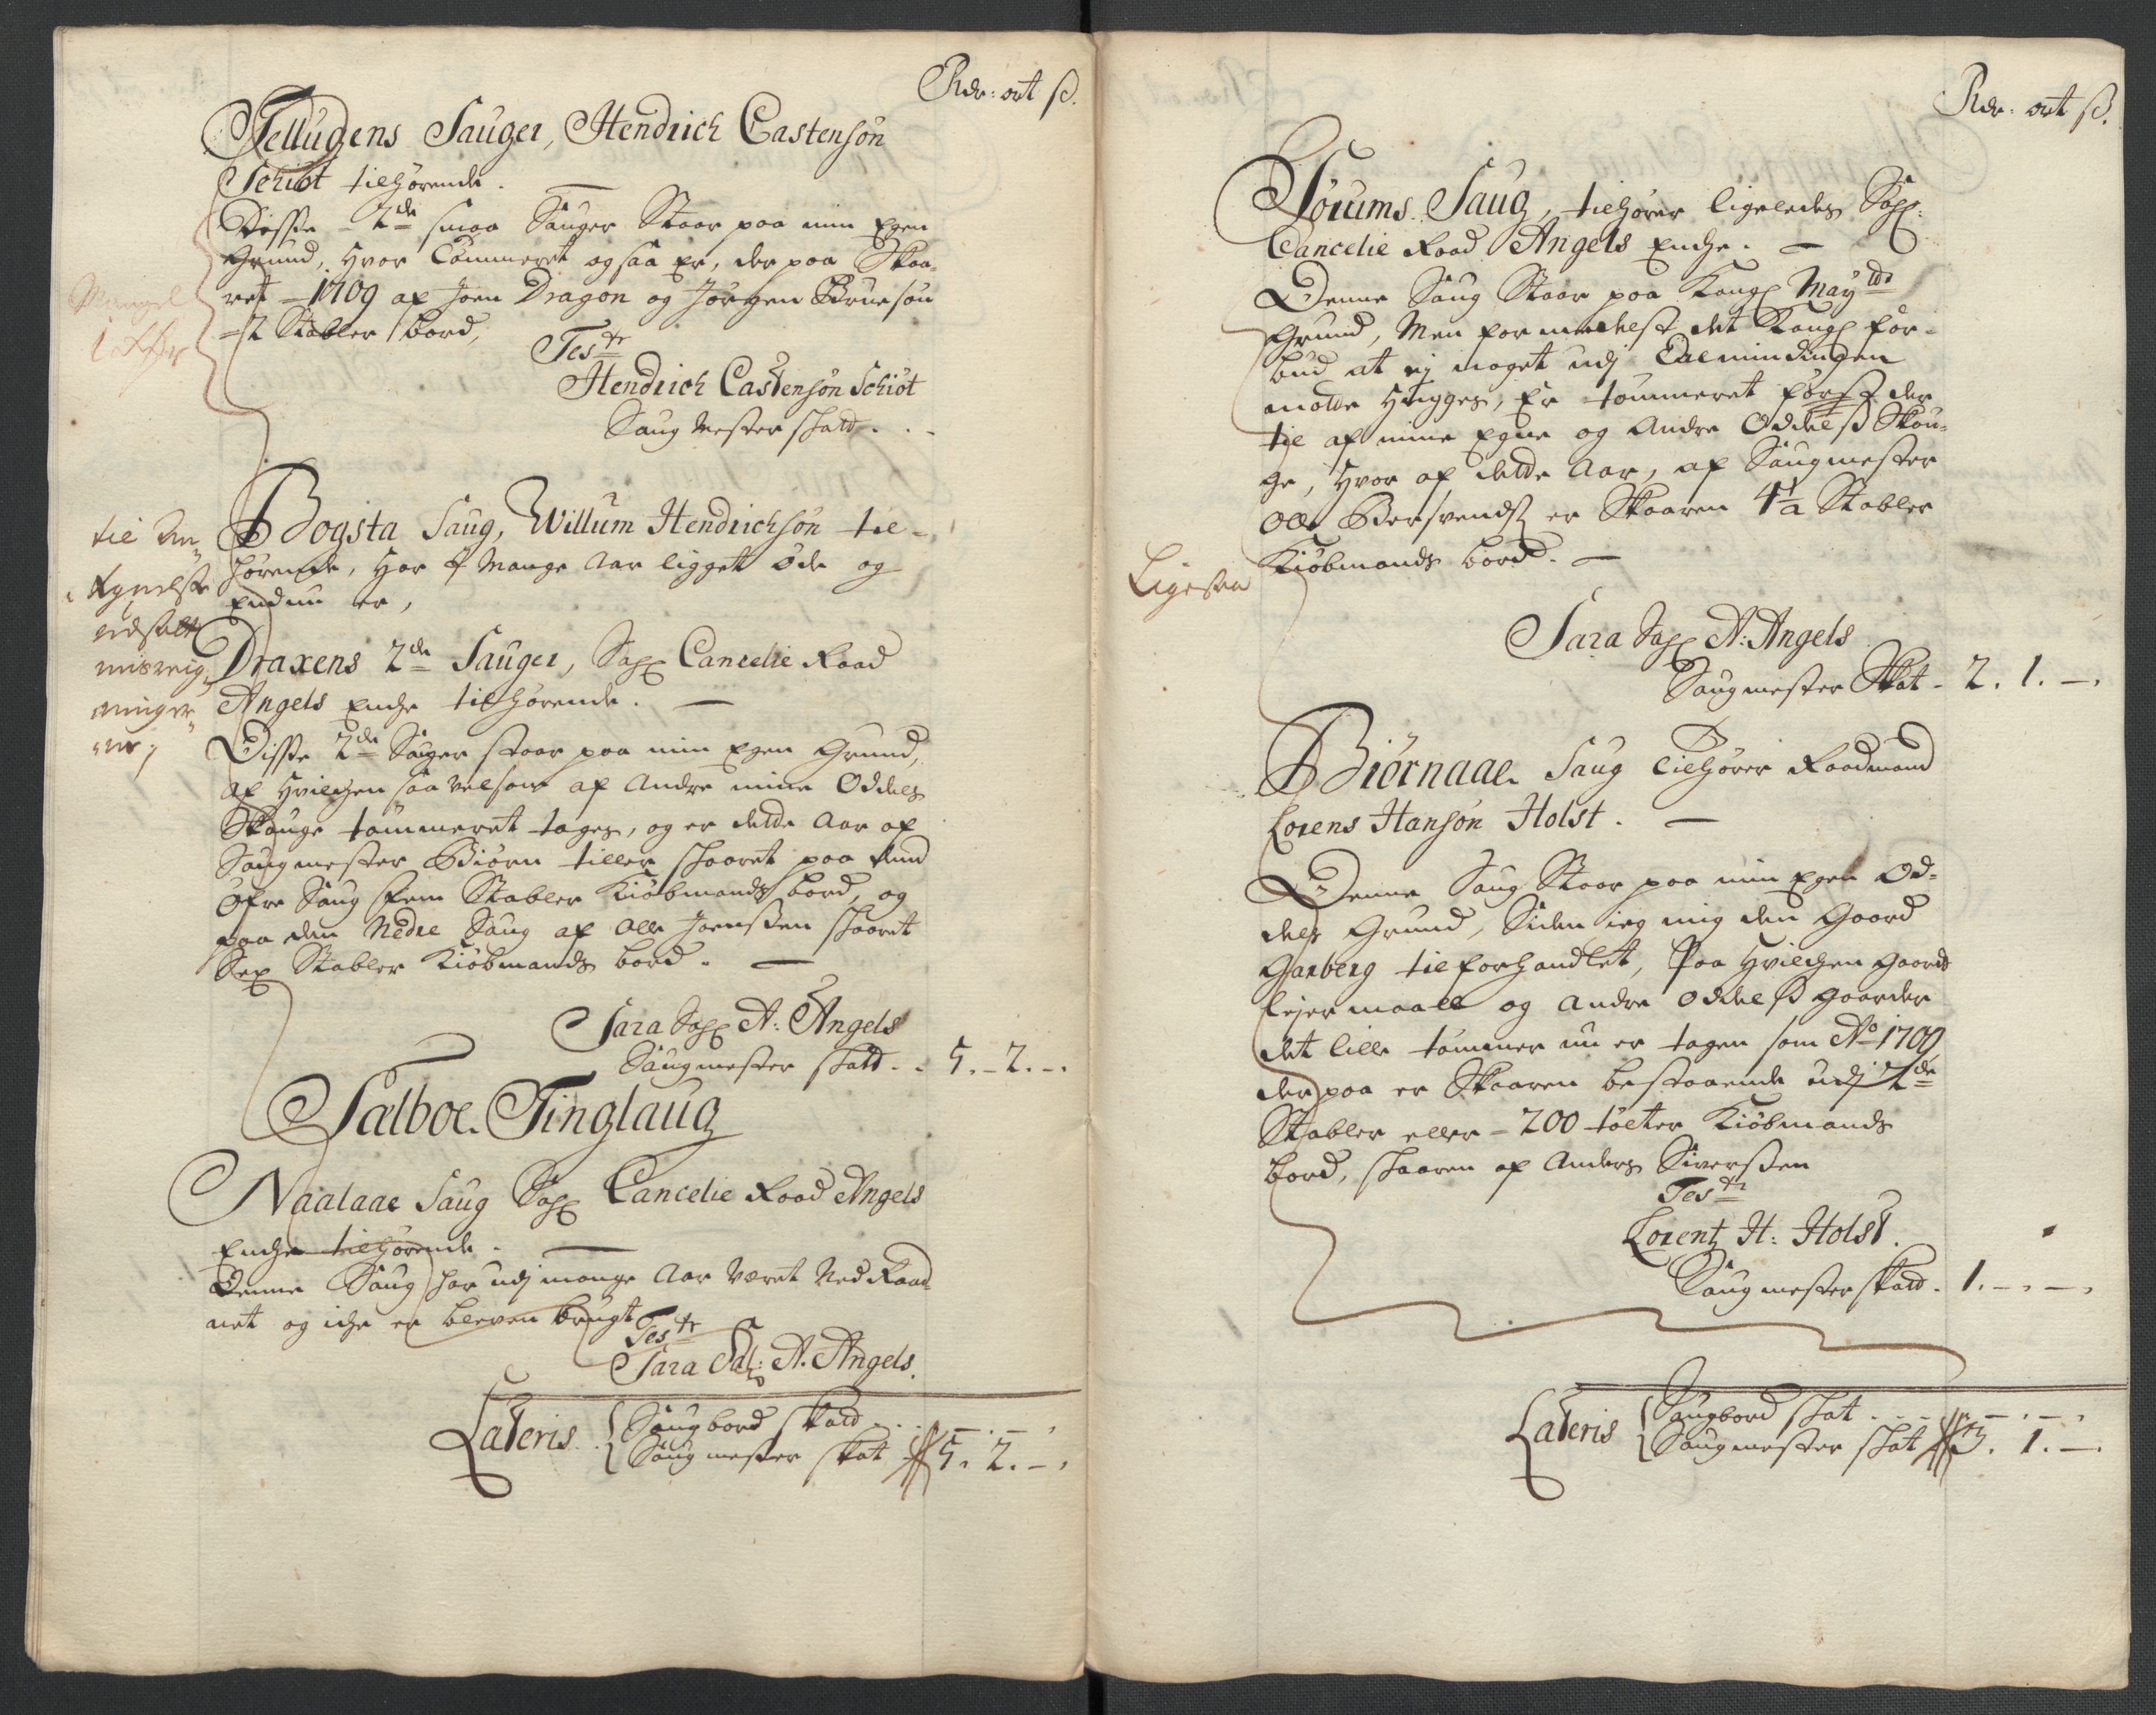 Rdr: ort ß.
Tellugens Sauger, Hendrich Castensøn
Schiøt tilhørende.
Disse 2de smaa Sauger Staar paa min Egen
Grund, hvor Tømmeret og saa Er, der paa Skaa-
ret 1709 af Joen Dragon og Jørgen Bruesøn
2 Stabler bord,
Teste
Hendrich Castensøn Schiøt
Saug Mester skatt . . .
Bogsta Saug, Willum Hendrichsøn til-
hørende, har i Mange Aar ligget Øde og
Endnu er,
Draxens 2de Sauger, Sahl Cancelie Raad
Angels Enche tilhørende.
Disse 2de Sauger staar paa min Egen Grund,
af hvilchen saa velsom af Andre mine Oddels
Skouge tømmeret tages, og er dette Aar af
Saugmester Biørn Tiller skaaret paa dend
Øfre Saug fem Stabler Kiøbmands bord, og
paa den Nedre Saug af Olle Joensen skaaret
Sex Stabler Kiøbmands bord.
Sara Sahl A: Angels
Saugmester skatt . . 5. 2. -.
Sælboe Tinglaug
Naalaae Saug Sahl Cancelie Raad Angels
Enche tilhørende.
Denne Saug har udj mange Aar været Ned Raad-
net og iche er bleven brugt
Teste
Sara Sal: A. Angels.
Lateris. Saugbord skatt . . - . - .
Saug mester skat 5. 2. -.
Mangel
til An-
tegnelse
udsatt
ninger-
Rdr: ort ß.
Sørums Saug, tilhører ligeledes Sahl:
Cancelie Raad Angels Enche.
Denne Saug Staar paa Kongl Mayts
Grund, Men formedelst det Kongl for-
bud at ej noget udj Almindingen
maatte hugges, Er tømmeret først der
til af mine Egne og Andre Oddelß Skou-
ge, hvor af dette Aar, af Saugmester
Olle Bersvends er Skaaren 4½ Stabler
Kiøbmands bord.
Ligesaa
Sara Sahl A: Angels
Saugmester Skat - 2. 1. -.
Biørnaae Saug tilhører Raadmand
Lorens Hansøn Holst.
Denne Saug Staar paa min Egen Od-
dels Grund, Siden ieg mig den Gaard
Garberg tilforhandlet, Paa hvilchen Gaards
lejermaall og andre Oddelß gaarder
det lille tømmer nu er tagen som Ao 1709
der paa er Skaaren bestaaende udj 2de
Stabler eller - 200 tolter Kiøbmands
bord, skaaren af Anders Siversen
Teste
Lorentz H: Holst.
Saugmester skatt . 1. -. -.
Lateris Saugbord skat . . - . - .
Saugmester skat 3. 1. -.